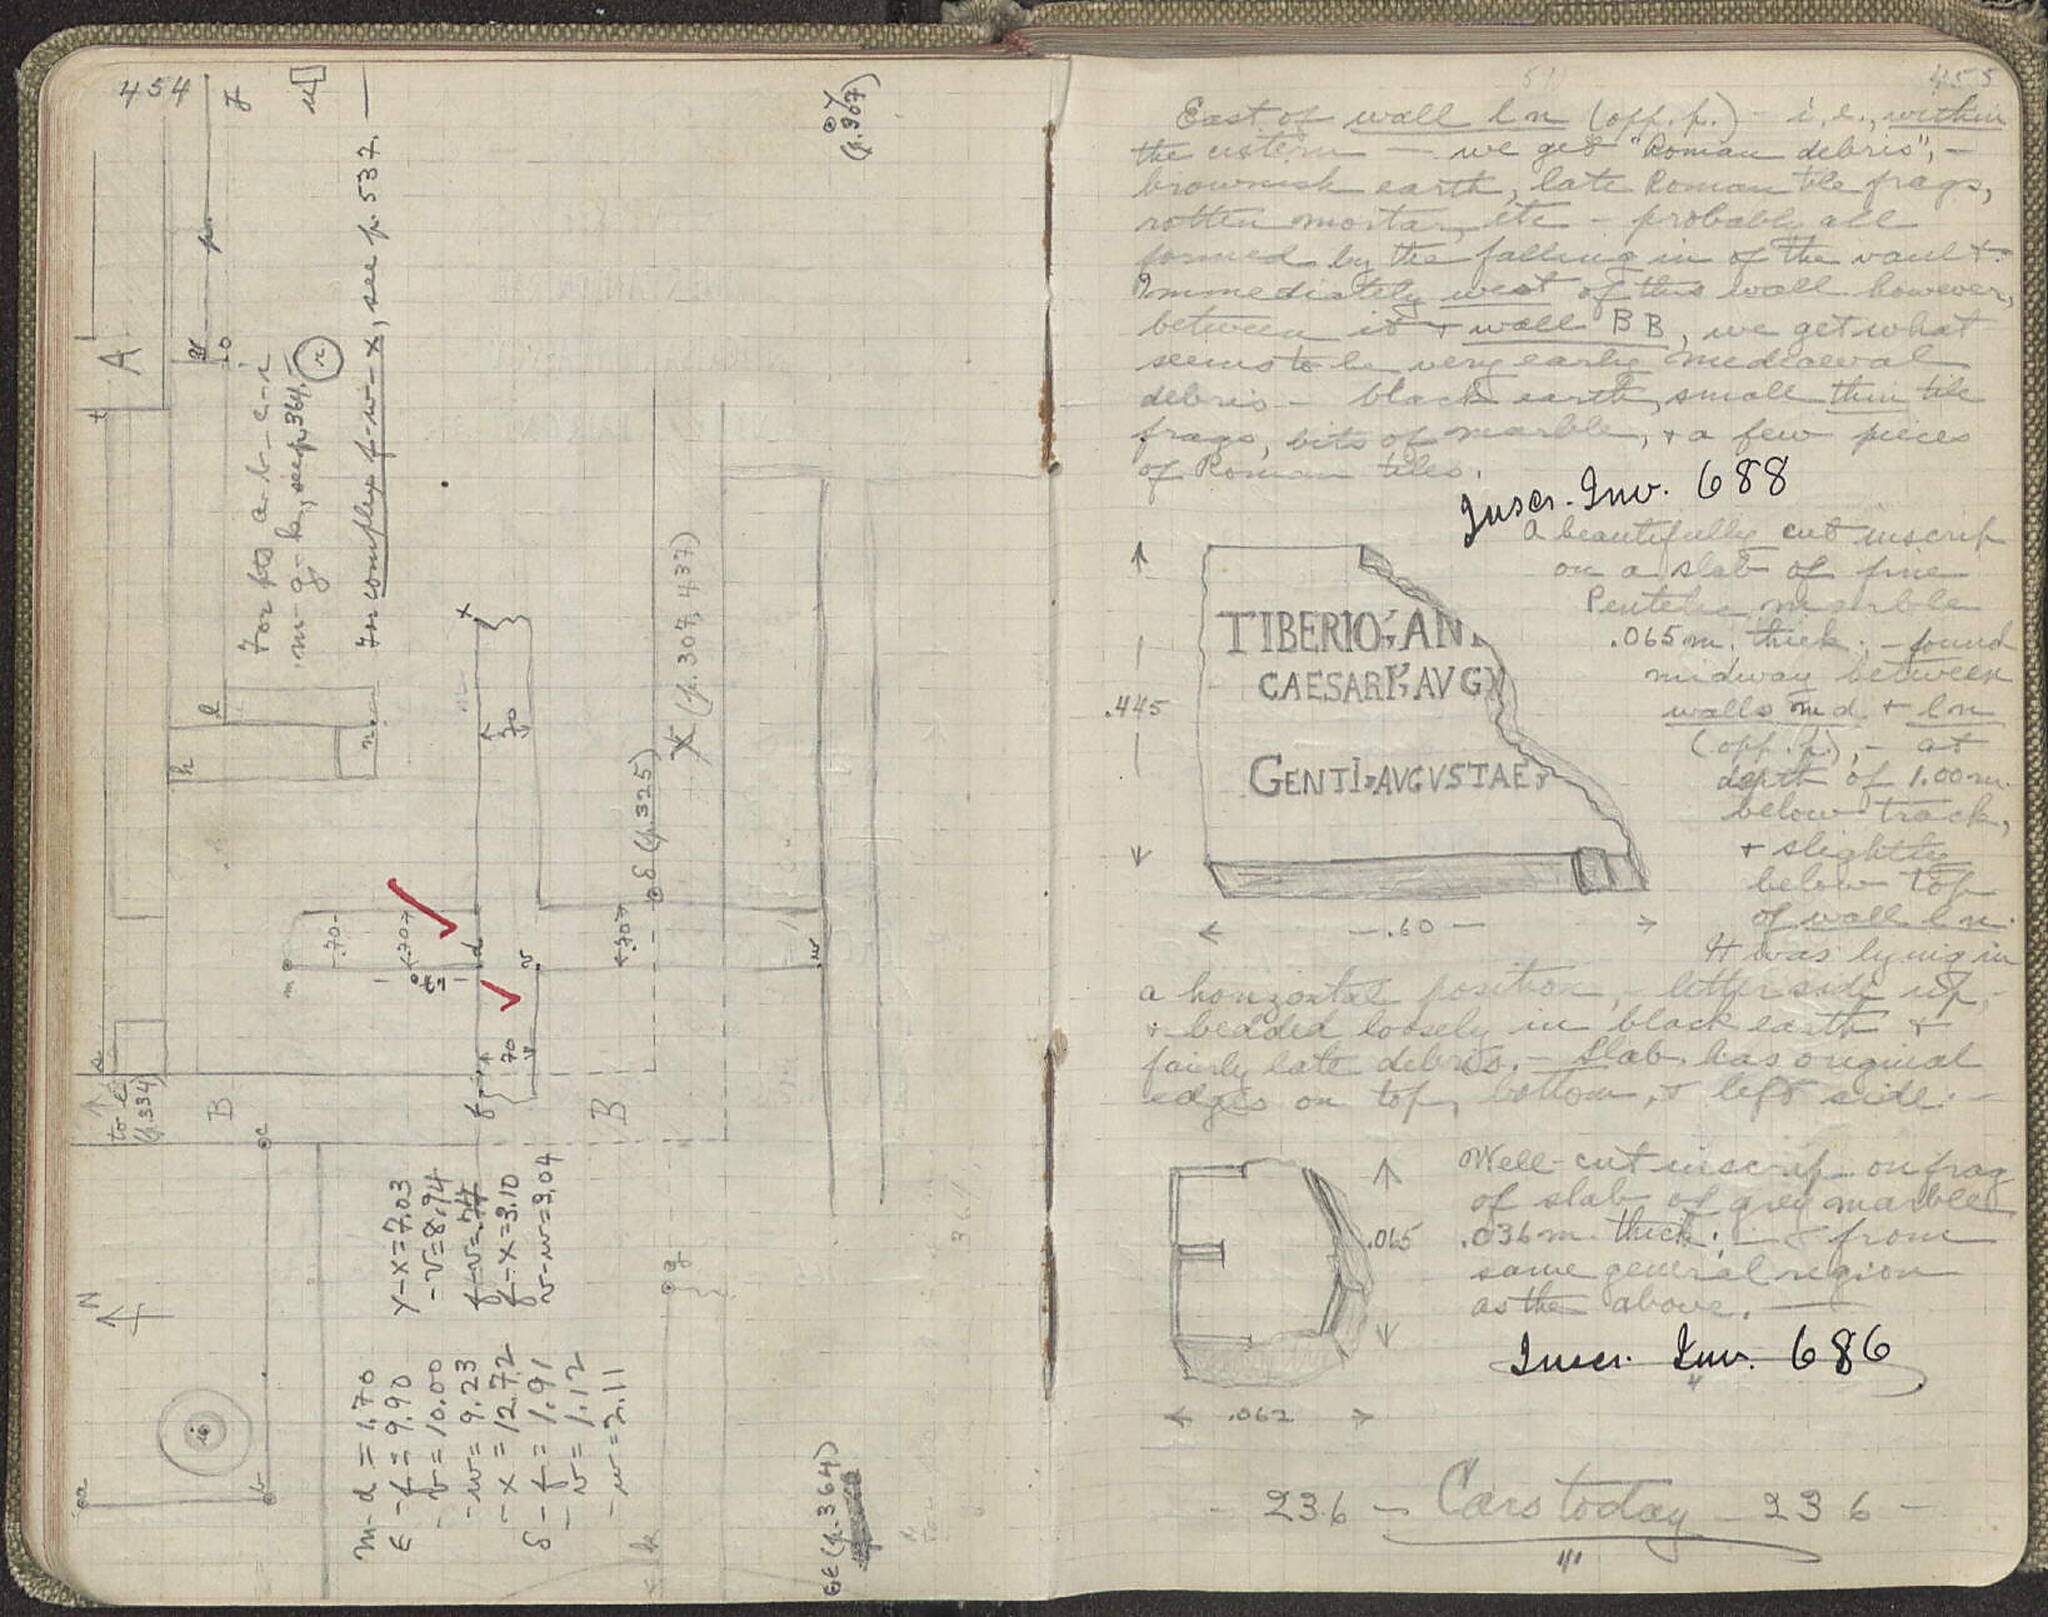 454
A
t
p
o
7
For pts a-b-c-i
m-g-k, see p. 364.
r
For complex f-w-x, see p. 537.
l
n
h
x
.70
X (p. 307, 437)
δ (p. 325)
Y
(p. 307)
m
.70
.70
d
v
.70
w
.70
f
s
to E
(p. 334)
B
B
c
N
a
b
i
g
k
m-d = 1.70
E-f = 9.90
-v = 10.00
-w = 9.23
-x = 12.72
δ-f = 1.91
-v = 1.12
-w = 2.11
Y-x = 7.03
-v = 8.94
f-v = .74
f-x = 3.10
v-w = 3.04
E (p. 364)
364
51
455
East of wall ln (opp. p.) - i.e., within
the cistern - we get "Roman debris", -
brownish earth, late Roman tile frags,
rotten mortar, etc - probably all
formed by the falling in of the vault.
Immediately west of this wall however,
between it + wall BB, we get what
seems to be very early mediaeval
debris - black earth, small thin tile
frags, bits of marble, + a few pieces
of Roman tiles.
Inscr. Inv. 688
A beautifully cut inscrip
on a slab of fine
Pentelic marble
.065 m. thick; - found
midway between
walls md + ln
(opp. p.), - at
depth of 1.00 m.
below track,
+ slightly
below top
of wall ln.
It was lying in
TIBERIO AN
CAESARI AVG
GENTI AVGVSTAE
.445
.60
a horizontal position, - letter side up, -
+ bedded loosely in black earth +
fairly late debris. - Slab has original
edges on top, bottom, + left side. -
Well-cut inscrip on frag
of slab of grey marble
.036 m. thick; - from
same general region
as the above. -
.065
.062
Inscr. Inv. 686
- 236 - Cars today - 236 -